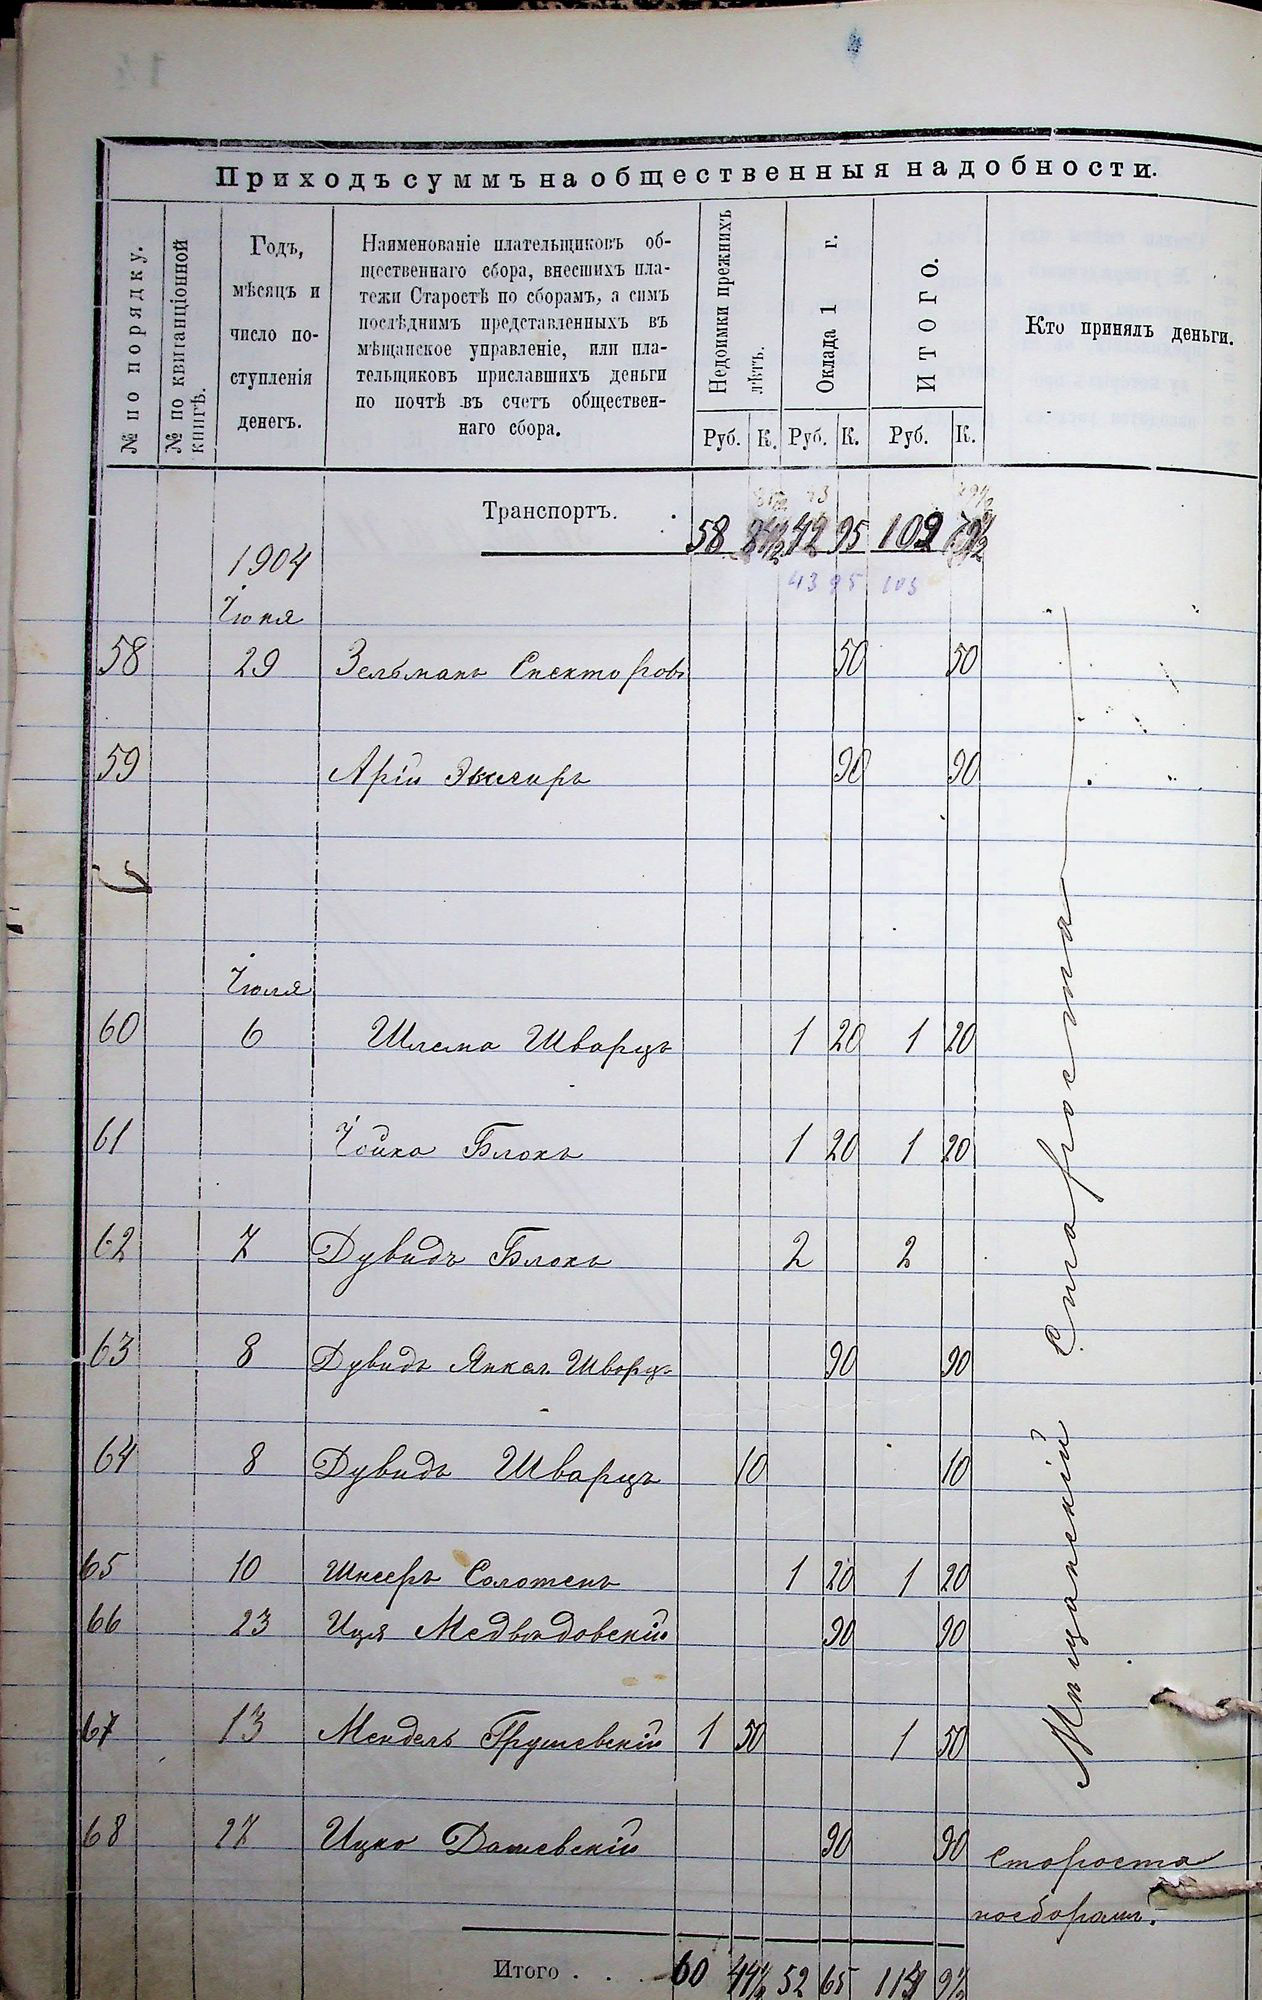 Приходъ суммъ на общественныя надобности.
№ по порядку.
№ по квитанціонной книгѣ.
Годъ,
мѣсяцъ и
число по-
ступленія
денегъ.
Наименованіе плательщиковъ об-
щественнаго сбора, внесшихъ пла-
тежи Старостѣ по сборамъ, а симъ
послѣднимъ представленныхъ въ
мѣщанское управленіе, или пла-
тельщиковъ приславшихъ деньги
по почтѣ въ счетъ обществен-
наго сбора.
Недоимки прежнихъ лѣтъ.
Оклада 1 г.
ИТОГО.
Кто принялъ деньги.
Руб. К. Руб. К. Руб. К.
Транспортъ. 58 42 95 102
43 95 103
1904
Іюня
58 29 Зельманъ Спекторовъ 50 50
59 Арій 90 90
Іюля
60 6 Шлема Шварцъ 1 20 1 20
61 Іойна Блохъ 1 20 1 20
62 7 Дувидъ Блохъ 2 2
63 8 Дувидъ Янкел. Шварцъ 90 90
64 8 Дувидъ Шварцъ 10 10
65 10 Шнееръ Солотенъ 1 20 1 20
66 23 Иця Медвѣдовскій 90 90
67 13 Мендель Грушевскій 1 50 1 50
68 27 Ицко Дашевскій 90 90
Мѣщанскій Староста
Староста
по сборамъ.
Итого . . . 60 44½ 52 65 9½